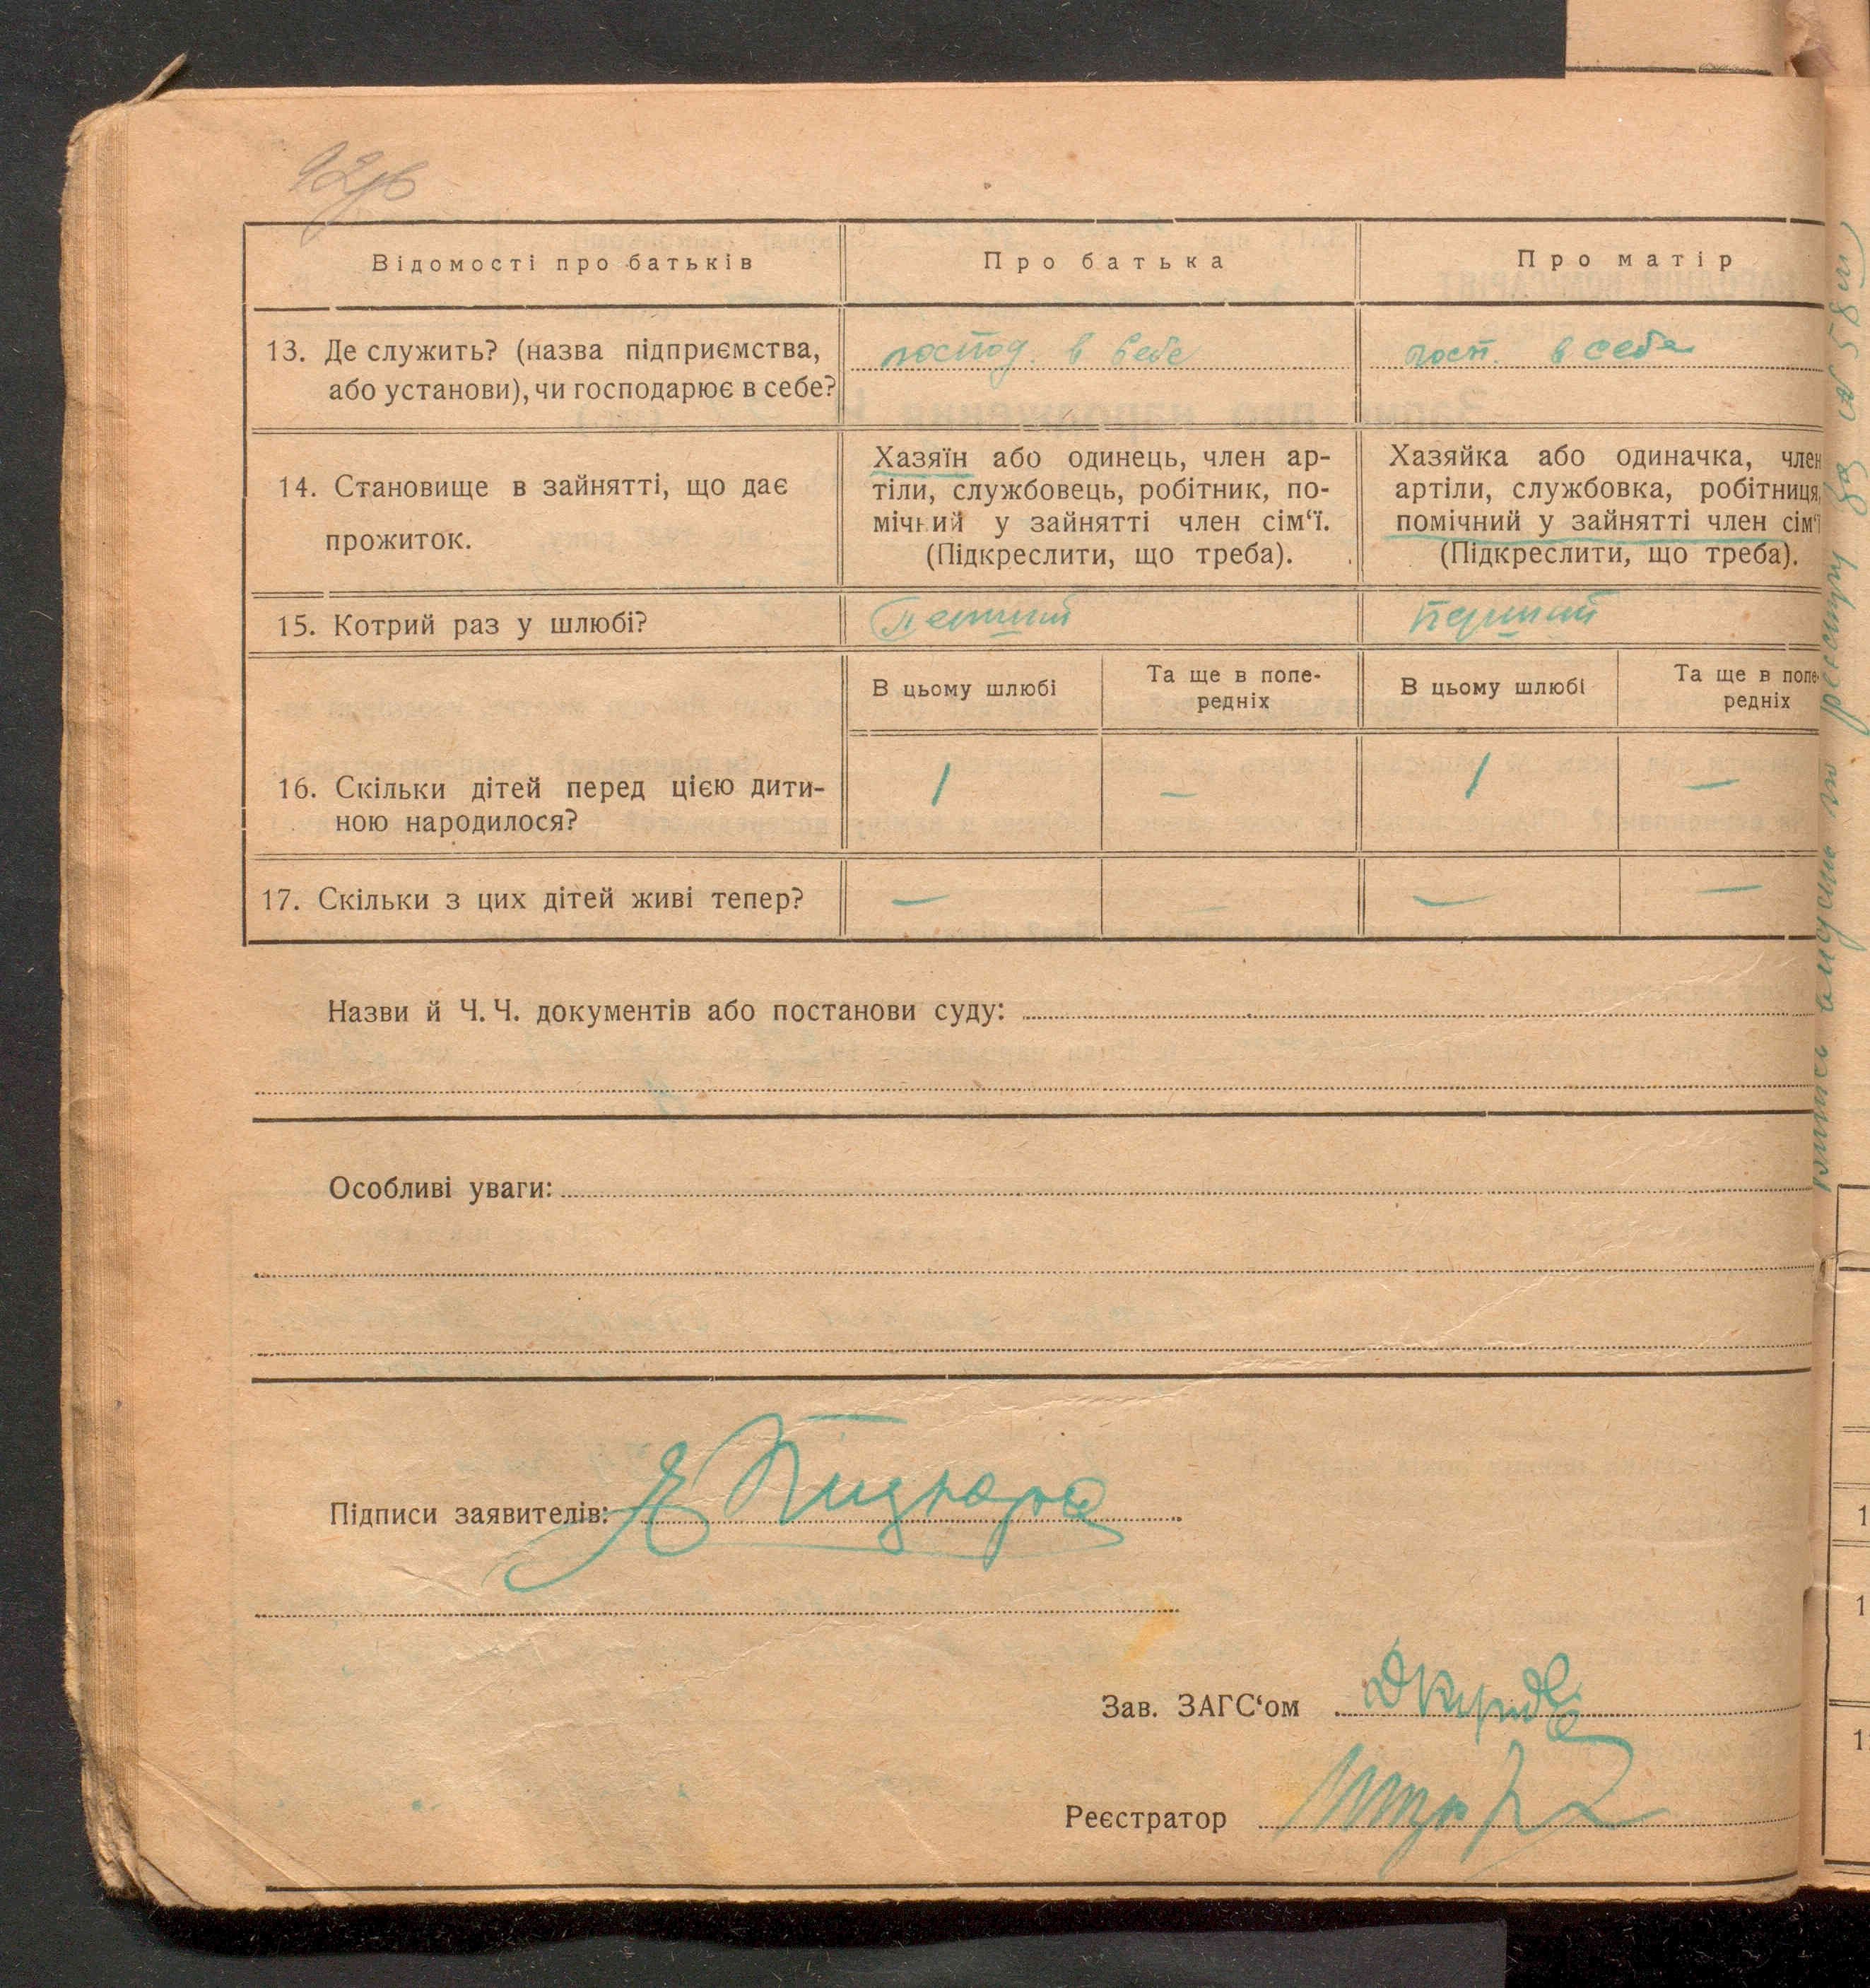 Відомості про батьків
Про батька
Про матір
13. Де служить? (назва підприємства,
або установи), чи господарює в себе?
господ. в себе
госп. в себе
14. Становище в зайнятті, що дає
прожиток.
Хазяїн або одинець, член ар-
тіли, службовець, робітник, по-
мічний у зайнятті член сім‘ї.
(Підкреслити, що треба).
Хазяйка або одиначка, член
артіли, службовка, робітниця,
помічний у зайнятті член сім‘ї
(Підкреслити, що треба).
15. Котрий раз у шлюбі?
Перший
Перший
В цьому шлюбі
Та ще в попе-
редніх
В цьому шлюбі
Та ще в попе-
редніх
16. Скільки дітей перед цією дити-
ною народилося?
1
—
1
—
17. Скільки з цих дітей живі тепер?
—
—
—
—
Назви й Ч. Ч. документів або постанови суду:
Особливі уваги:
Підписи заявителів:
Зав. ЗАГС‘ом
Реєстратор